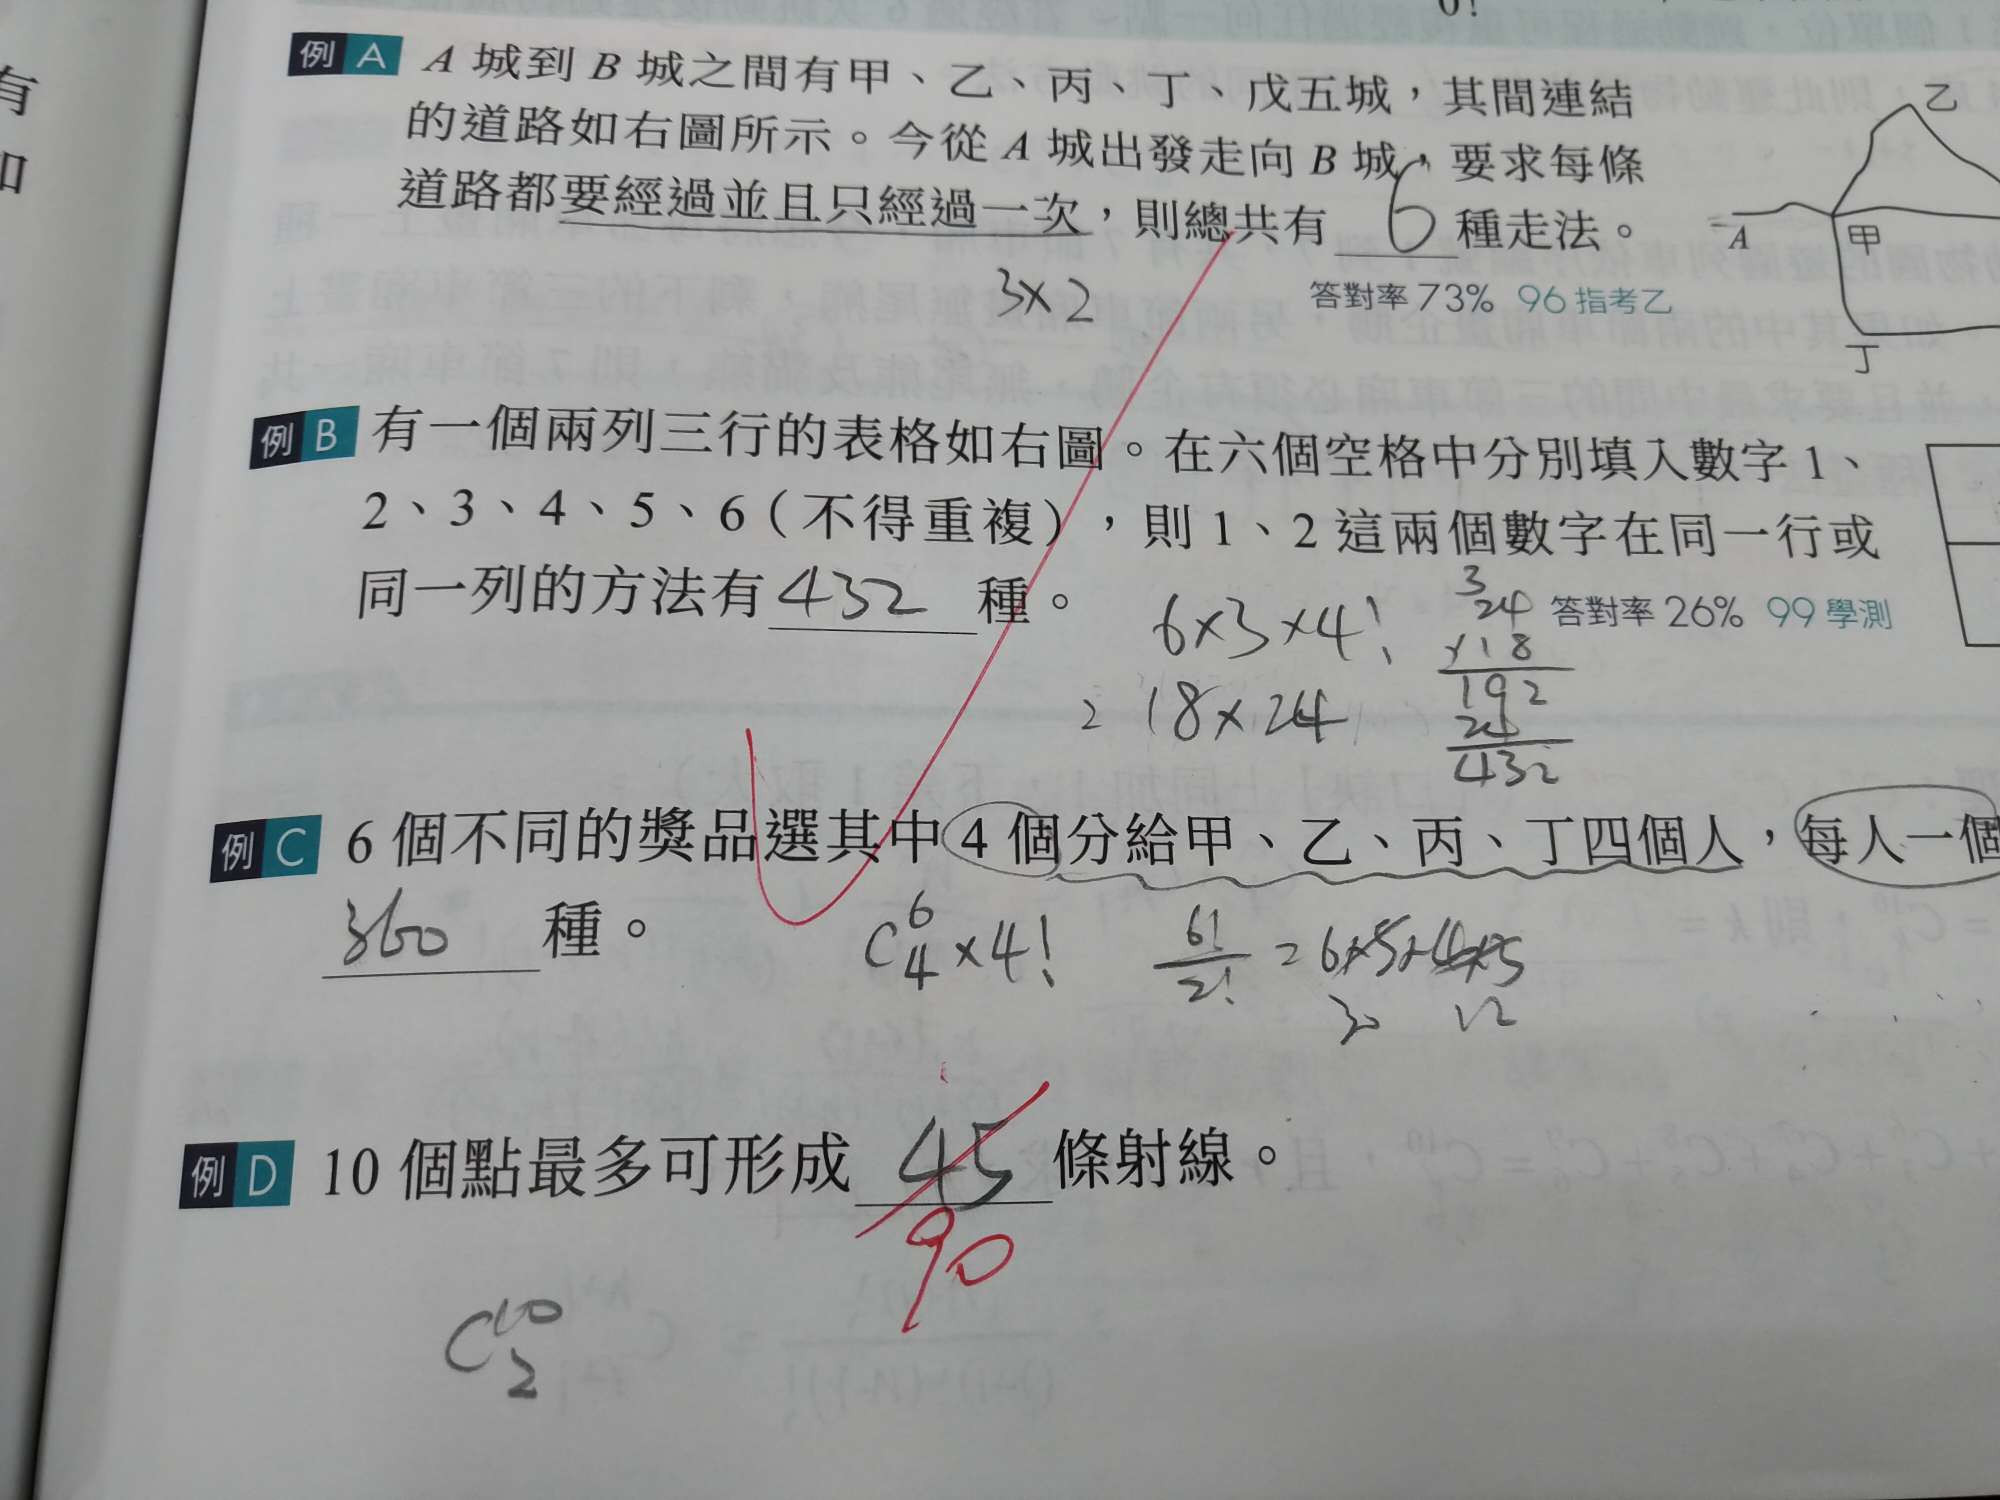 有
如
0!
例 A A 城到 B 城之間有甲、乙、丙、丁、戊五城,其間連結
的道路如右圖所示。今從 A 城出發走向 B 城,要求每條
道路都要經過並且只經過一次,則總共有 6 種走法。
3×2
答對率 73% 96 指考乙
乙
A
甲
丁
例 B 有一個兩列三行的表格如右圖。在六個空格中分別填入數字 1、
2、3、4、5、6(不得重複),則 1、2 這兩個數字在同一行或
同一列的方法有 432 種。
答對率 26% 99 學測
6×3×4!
= 18×24
3
24
×18
192
24
432
例 C 6 個不同的獎品選其中 4 個分給甲、乙、丙、丁四個人,每人一個
360 種。
C^6_4×4!
6!/2! = 6×5×4×3
30 12
例 D 10 個點最多可形成 45 條射線。
90
C^10_2